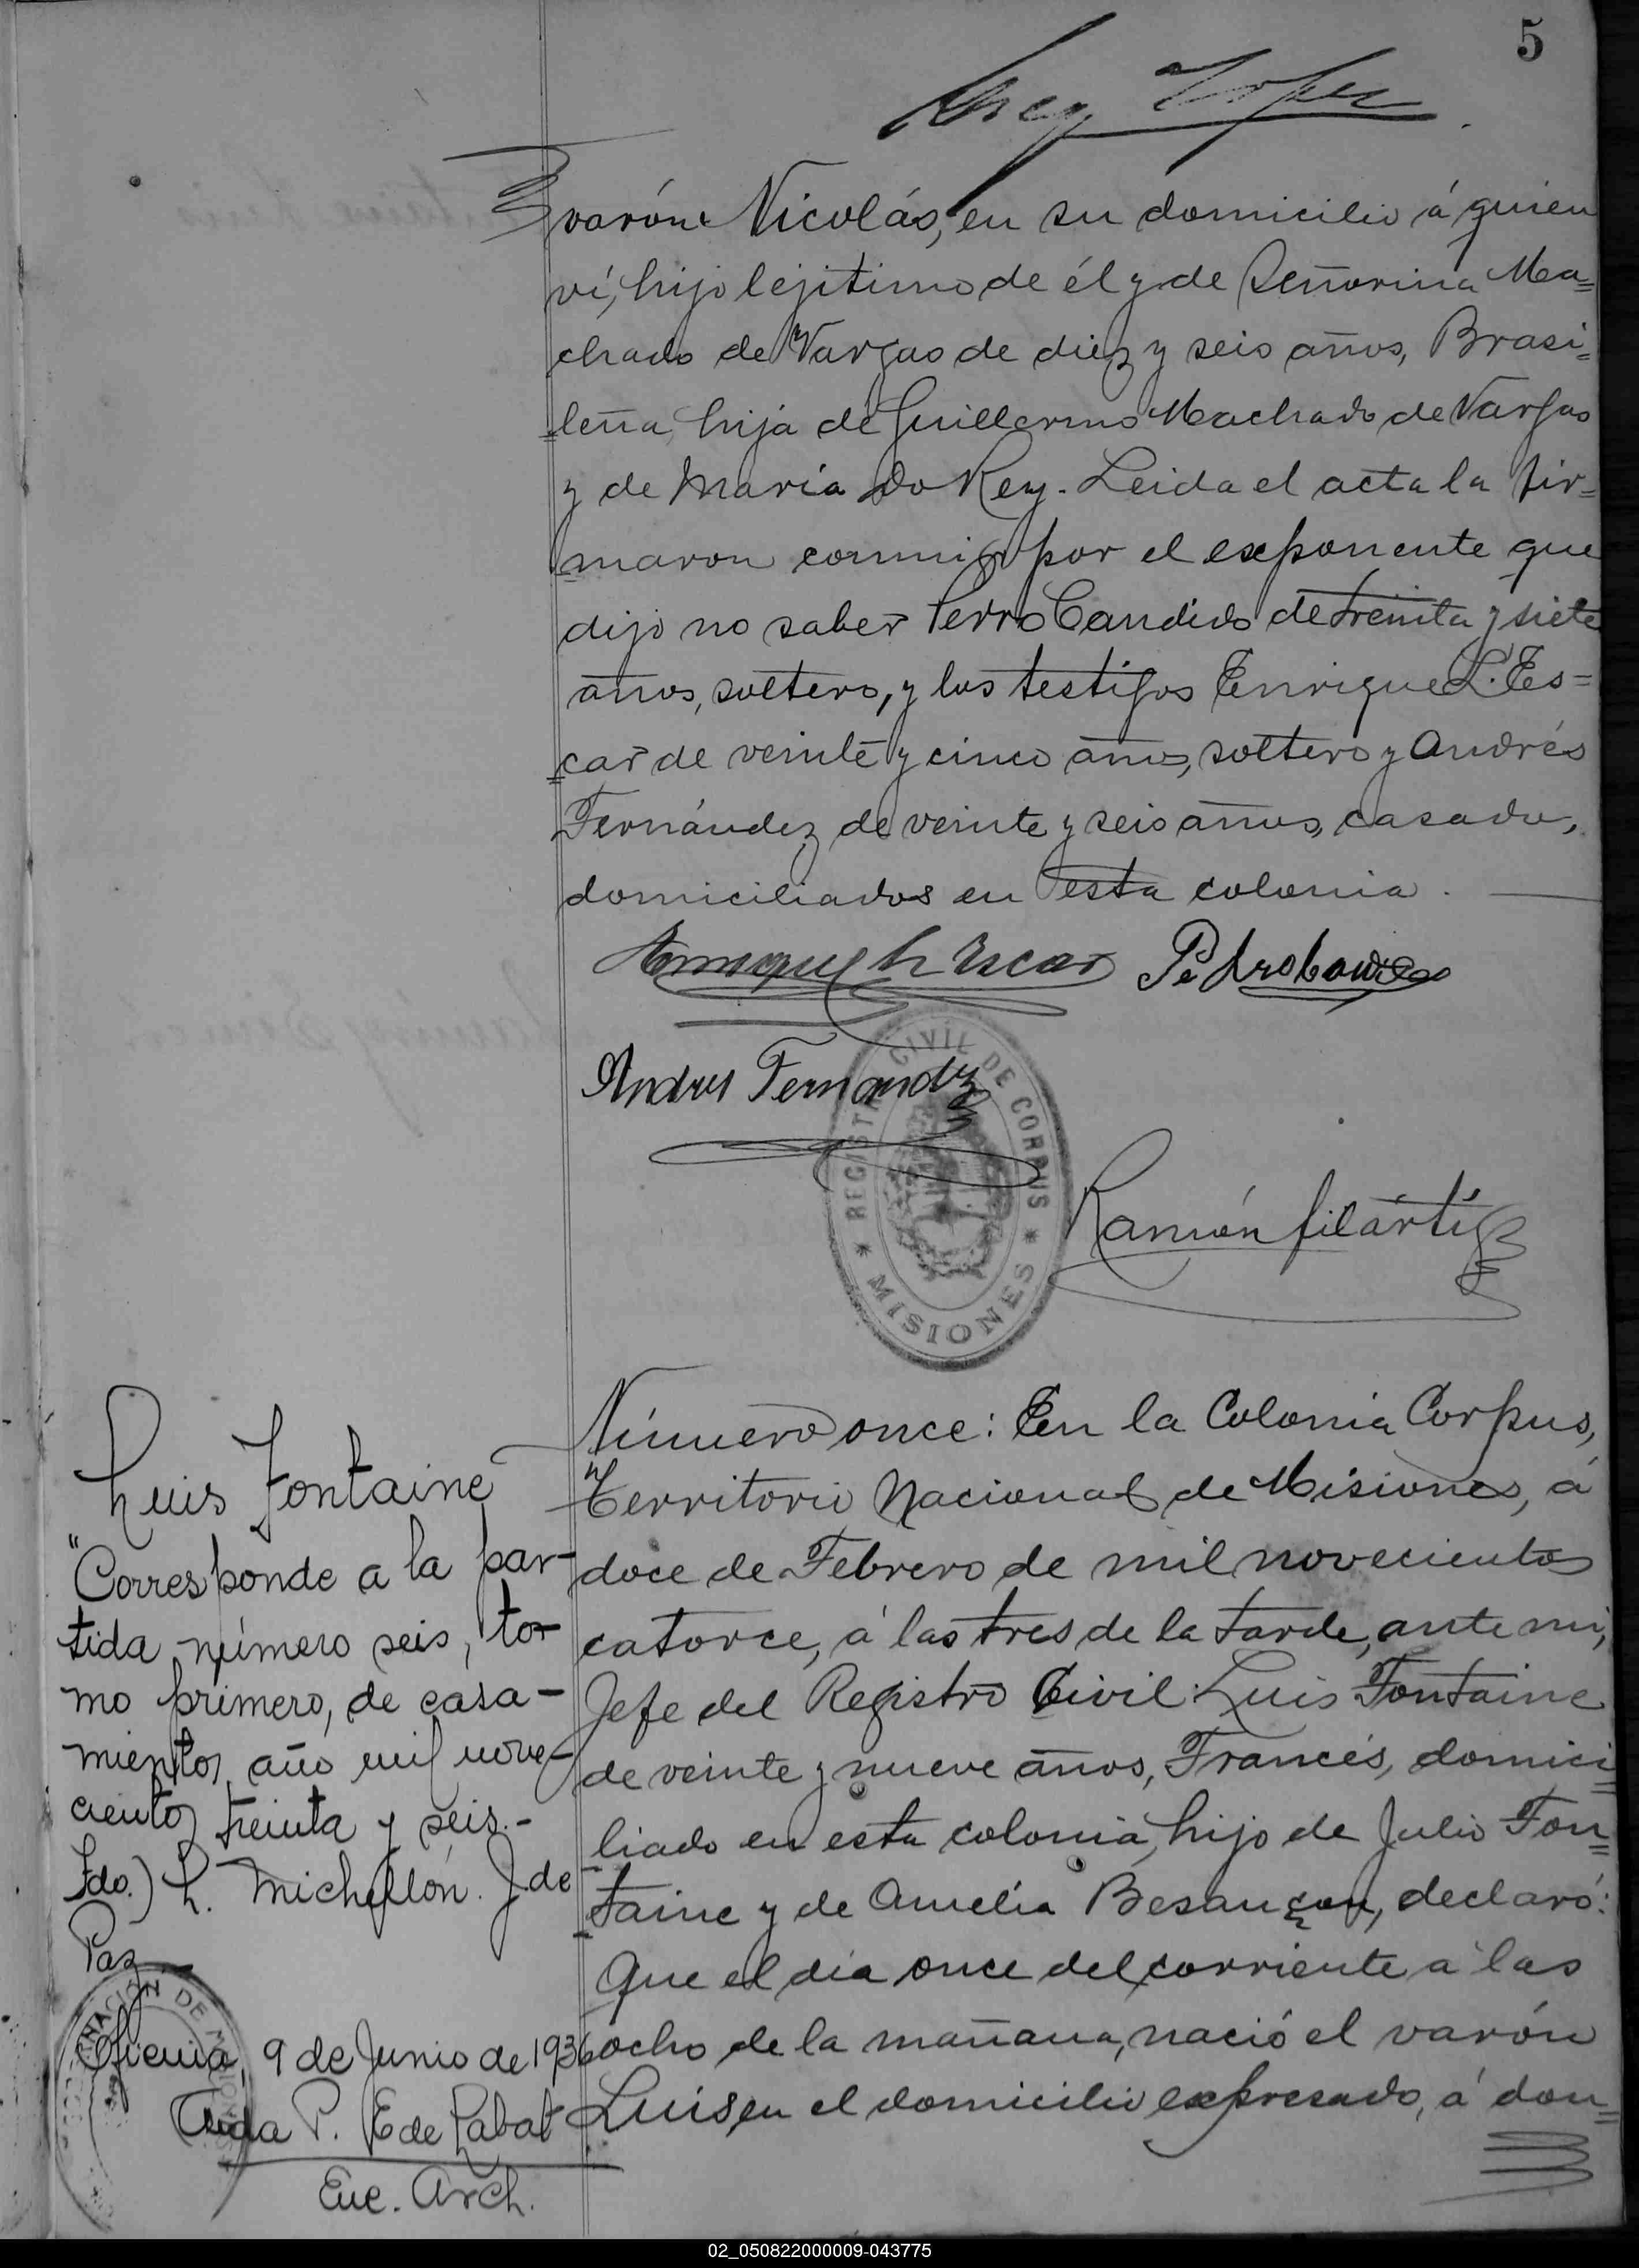 5
Greg. Lopez
varón Nicolás, en su domicilio á quien
ví, hijo lejitimo de él y de Señorina Ma=
chado de Vargas de diez y seis años, Brasi=
leña, hija de Guillermo Machado de Vargas
y de María Do Rey. Leida el acta la fir=
maron conmigo por el exponente que
dijo no saber Pedro Candido de treinta y siete
años, soltero, y los testigos Enrique L. Es=
car de veinte y cinco años, soltero y Andrés
Fernández de veinte y seis años, casado,
domiciliados en esta colonia.
Enrique L. Escar Pedro
Andres Fernandez
REGISTRO CIVIL DE CORPUS
* MISIONES *
Ramón Filártiga
Luis Fontaine
"Corresponde a la par-
tida número seis, to-
mo primero, de casa-
mientos año mil nove-
cientos treinta y seis.-
Fdo.) L. Michellón. J. de
Paz
DE MISIONES
Oficina, 9 de Junio de 1936
Aida P. E de Labat
Enc. Arch.
Número once: En la Colonia Corpus,
Territorio Nacional de Misiones, á
doce de Febrero de mil novecientos
catorce, á las tres de la tarde, ante mí,
Jefe del Registro Civil: Luis Fontaine
de veinte y nueve años, Francés, domici=
liado en esta colonia, hijo de Julio Fon=
taine y de Amelia Besançon, declaró:
Que el día once del corriente a las
ocho de la mañana, nació el varón
Luis en el domicilio expresado, á don=
02_050822000009-043775